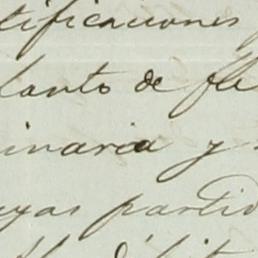 tificaciones
lanto de fle
inaria y
uyas partid